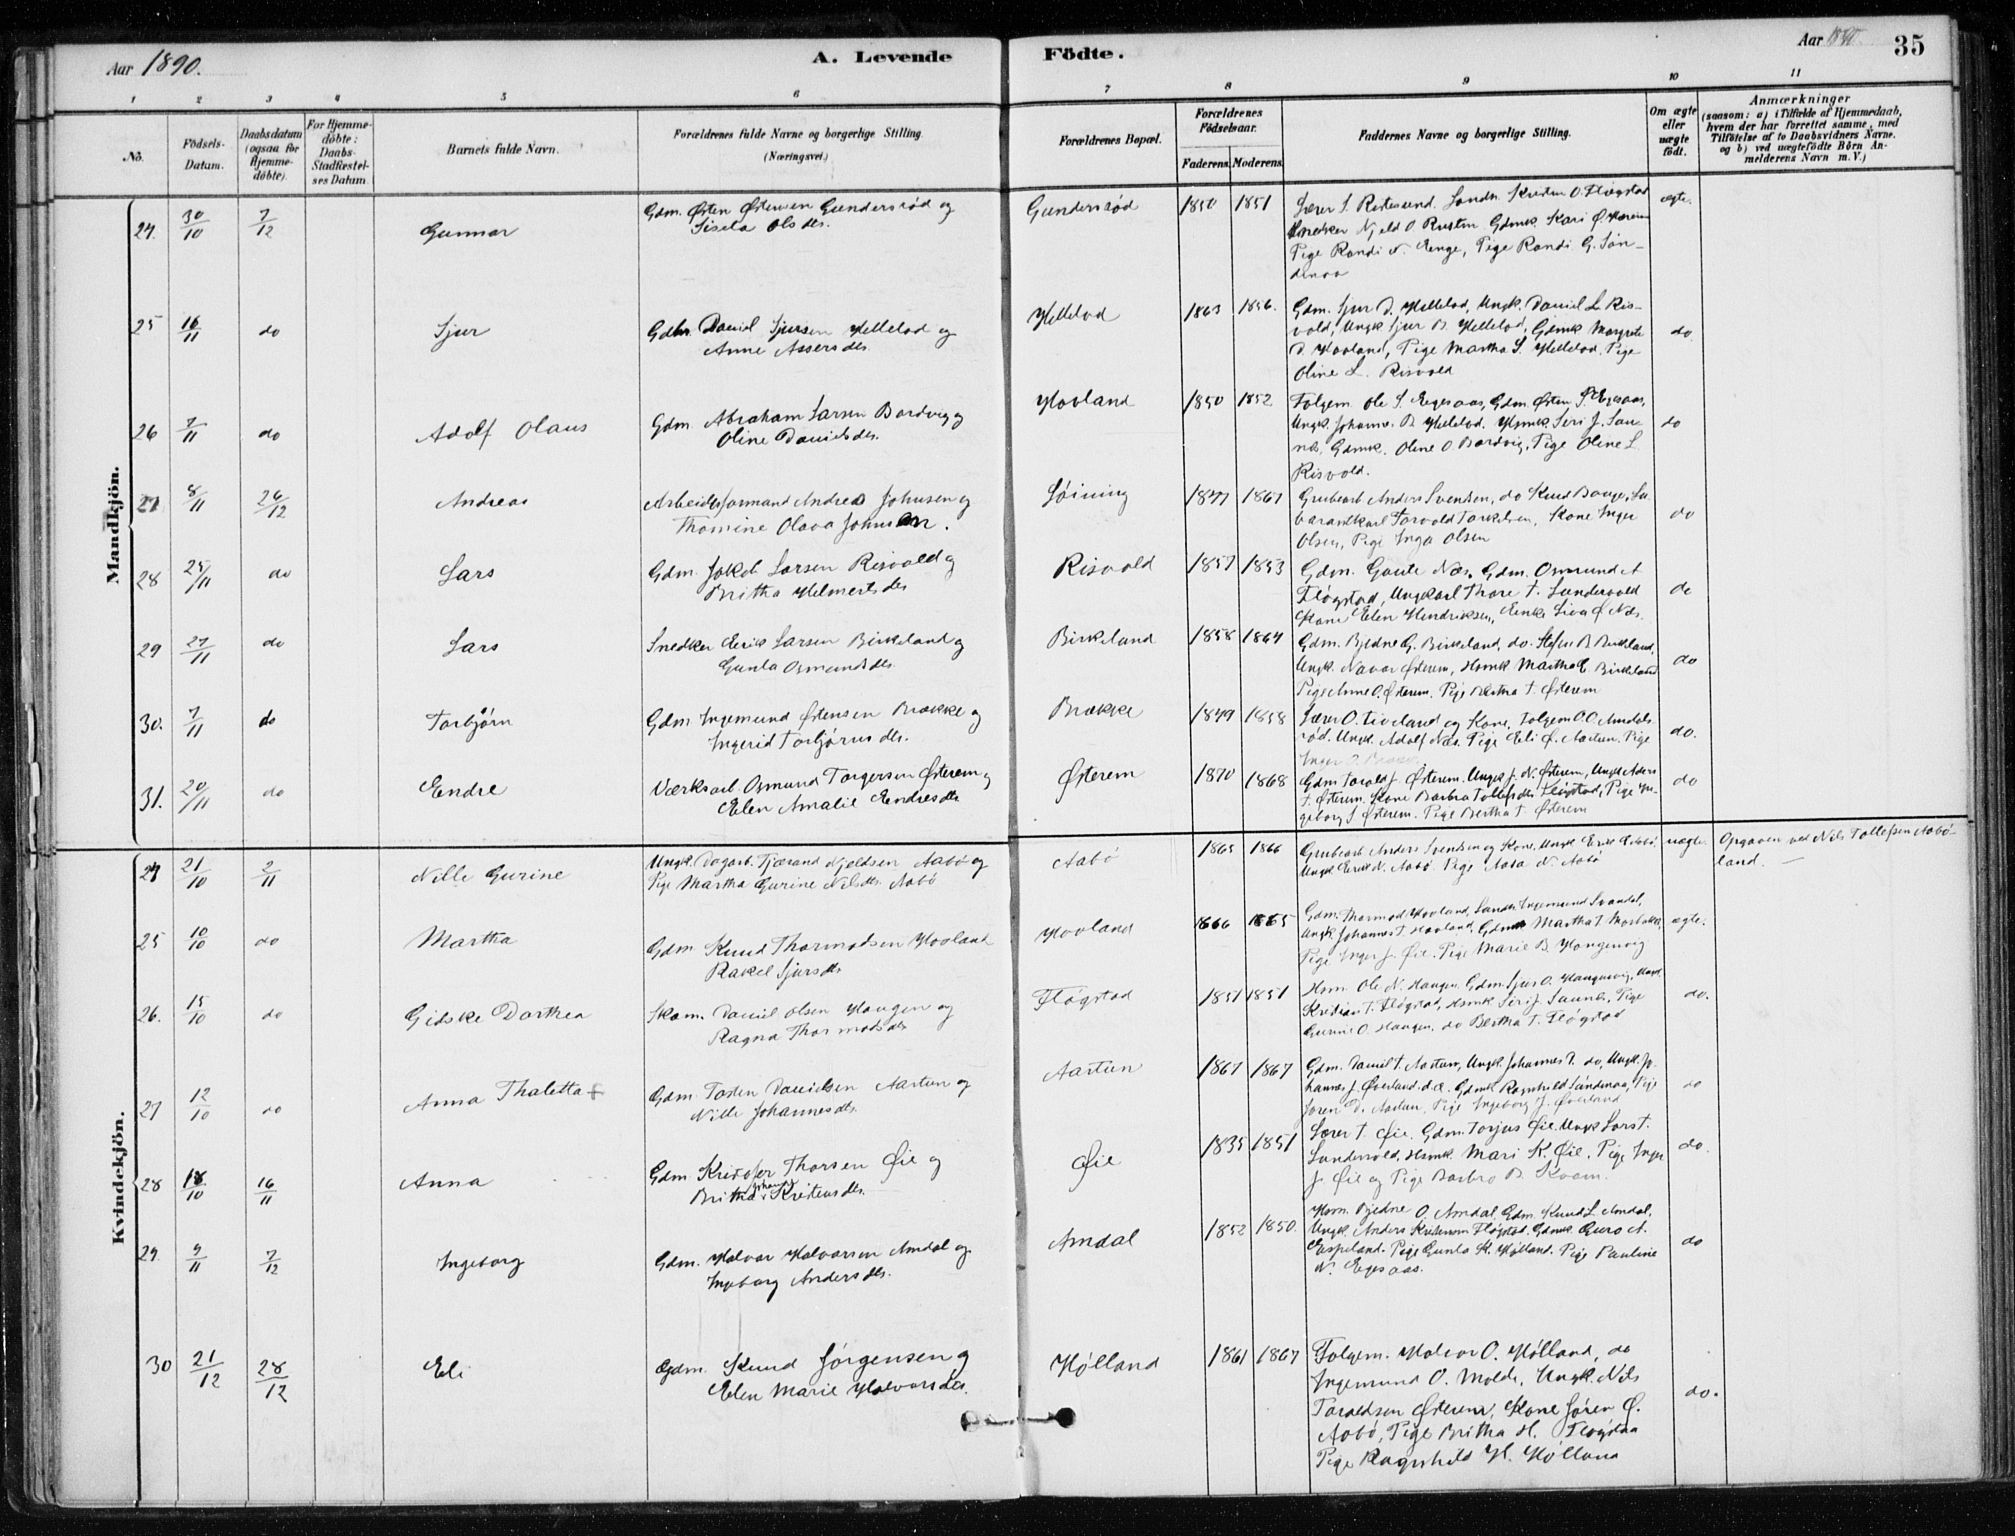 Aar 1890.
A. Levende Födte.
Aar 1890
35
1 2 3 4 5 6 7 8 9 10 11
No.
Födsels-Datum.
Daabsdatum (ogsaa for Hjemmedöbte).
For Hjemmedöbte: Daabs-Stadfæstelses Datum
Barnets fulde Navn.
Forældrenes fulde Navne og borgerlige Stilling. (Næringsvei.)
Forældrenes Bopæl.
Forældrenes Födselsaar.
Faderens. Moderens.
Faddernes Navne og borgerlige Stilling.
Om ægte eller uægte födt.
Anmærkninger
(saasom: a) i Tilfælde af Hjemmedaab, hvem der har forrettet samme, med Tilföielse af to Daabsvidners Navne. og b) ved uægtefödte Börn Anmelderens Navn m. V.)
Mandkjön.
24. 30/10 7/12 Gunnar Gdm. Østen Østensen Gundersrød og
Sisela Olsdr.
Gundersrød 1850 1851 ægte.
Pige Randi N. Enge, Pige Randi G. Søndenaa
25 16/11 do Sjur Gdm. Daniel Sjursen Hellelod og
Anne Assersdr.
Hellelod 1863 1856. Gdm. Sjur D. Hellelod, Ungk. Daniel L. Risvold, Ungk. Sjur B. Hellelod, Gdmk Margrete
D. Hovland, Pige Martha S. Hellelod. Pige
Oline L. Risvold
do
26 7/11 do Adolf Olaus Gdm. Abraham Larsen Bardvig og
Oline Danielsdr.
Hovland 1850 1852 Folgem. Ole S. Egesaas, Gdm. Østen S. Egesaas,
Ungk. Johannes D. Hellelod. Hsmk. Siri J. Saunes, Gdmk. Oline O. Bardvig, Pige Oline L.
Risvold.
do
27 8/11 26/12 Andreas Arbeidsformand Andreas Johnsen og
Thomine Olava Johnsen.
Søining 1867 Grubearb Anders Svendsen, do Knud Bauge,
Torvold Torkelsen, Kone Inger
Olsen, Pige Inga Olsen
do
28 25/11 do Lars Gdm. Jakob Larsen Risvold og
Britha Helmersdr
Risvold 1857 1853 Gdm. Gaute Næs. Gdm. Osmund A
Fløgstad, Ungkarl Thore T. Sandersvold
Kone Elen Hendriksen, Enke Siva Ø. Næs.
do
29 27/11 do Lars Snedker Eerik Larsen Birkeland og
Gunla Osmundsdr.
Birkeland 1858 1864 Gdm. Bjedne G. Birkeland, do. Stefen B. Birkeland,
Ungk. Navar Østerem, Hsmk Martha E. Birkeland
Pige Anne O. Østerem. Pige Bertha T. Østerem
do
30. 7/11 do Torbjørn Gdm. Ingemund Østensen Brække og
Ingerid Torbjørnsdr.
Brække 1849 1858 Lærer O. Tiveland og Kone, Folgem O. O. Amdalsrød. Ungk. Adolf Næs. Pige Eli Ø. Aartun. Pige
Inger
do.
31. 20/11 do Endre Værksarb. Osmund Torgersen Østerem og
Elen Amalie Endresdr
Østerem 1870 1868 Gdm Torold J. Østerem. Ungk J. N. Østerem, Ungk Anders
T. Østerem. Kone Barbra Tollefsdr Fløgstad, Pige Ingeborg S. Østerem. Pige Bertha T. Østerem
do
Kvindekjön.
24 21/10 2/11 Nille Gurine Ungk. Dagarb. Tjærand Njeldsen Aabø og
Pige Martha Gurine Nilsdr. Aabø
Aabø 1865 1866 Grubearb Anders Svendsen og Kone, Ungk Erik Aabø,
Ungk. Erik N. Aabø. Pige Aasa N. Aabø
uægte. Opgaven ved Nils Tollefsen Aabøland.
25 10/10 do Martha Gdm Knud Thormodsen Hovland
Rakel Sjursdr
Hovland 1866 1865 Gdm. Thormod Hovland,
Ungk Johannes T. Hovland, Martha T.
Pige Inger J. Øie. Pige Marie B. Haugenvig
ægte.
26. 15/10 do Gidske Dorthea Skom. Daniel Olsen Haugen og
Ragna Thormodsdr
Fløgstad 1851 1851 Hsm. Ole N. Haugen. Gdm. Sjur O. Haugenvig, Ungk
Kristian T. Fløgstad, Hsmk Siri J. Saunes, Pige
Gurine O. Haugen. do Bertha T. Fløgstad
do.
27 12/10 do Anna Thaletta + Gdm. Tosten Danielsen Aartun og
Nille Johannesdr.
Aartun 1867 1867 Gdm. Daniel T. Aartun, Ungk. Johannes D. do, Ungk. Johannes J. Øverland. Gdmk Ragnhild Søndenaa, Pige
Søren D. Aartun, Pige Ingeborg J. Øverland
do
28 18/10 16/11 Anna Gdm Kristofer Thorsen Øie og
Britha Johanne Kristensdr.
Øie 1835 1851 Lærer T. Øie. Gdm. Torjus Øie. Ungk Lars T.
Sandersvold, Hsmk. Mari K. Øie. Pige Inger
J. Øie og Pige Barbro B. Kvam.
do.
29. 9/11 7/12 Ingeborg Gdm. Halvor Halvorsen Amdal og
Ingeborg Andersdr.
Amdal 1852 1850. Hsm. Bjedne O. Amdal, Gdm. Knud L. Amdal,
Ungk. Anders Kristensen Fløgstad. Gdmk Guro A.
Espeland. Pige Gunla K. Hølland. Pige Pauline
N. Egesaas.
do
30 21/12 28/12 Eli Gdm. Knud Jørgensen og
Elen Marie Halvorsdr.
Hølland 1861 1867 Folgem. Halvor O. Hølland, do
Ingemund O. Molde, Ungk. Nils
Taraldsen Østerem, Kone Søren Ø.
Aabø, Pige Britha H. Fløgstad
Pige Ragnhild H. Hølland
do.